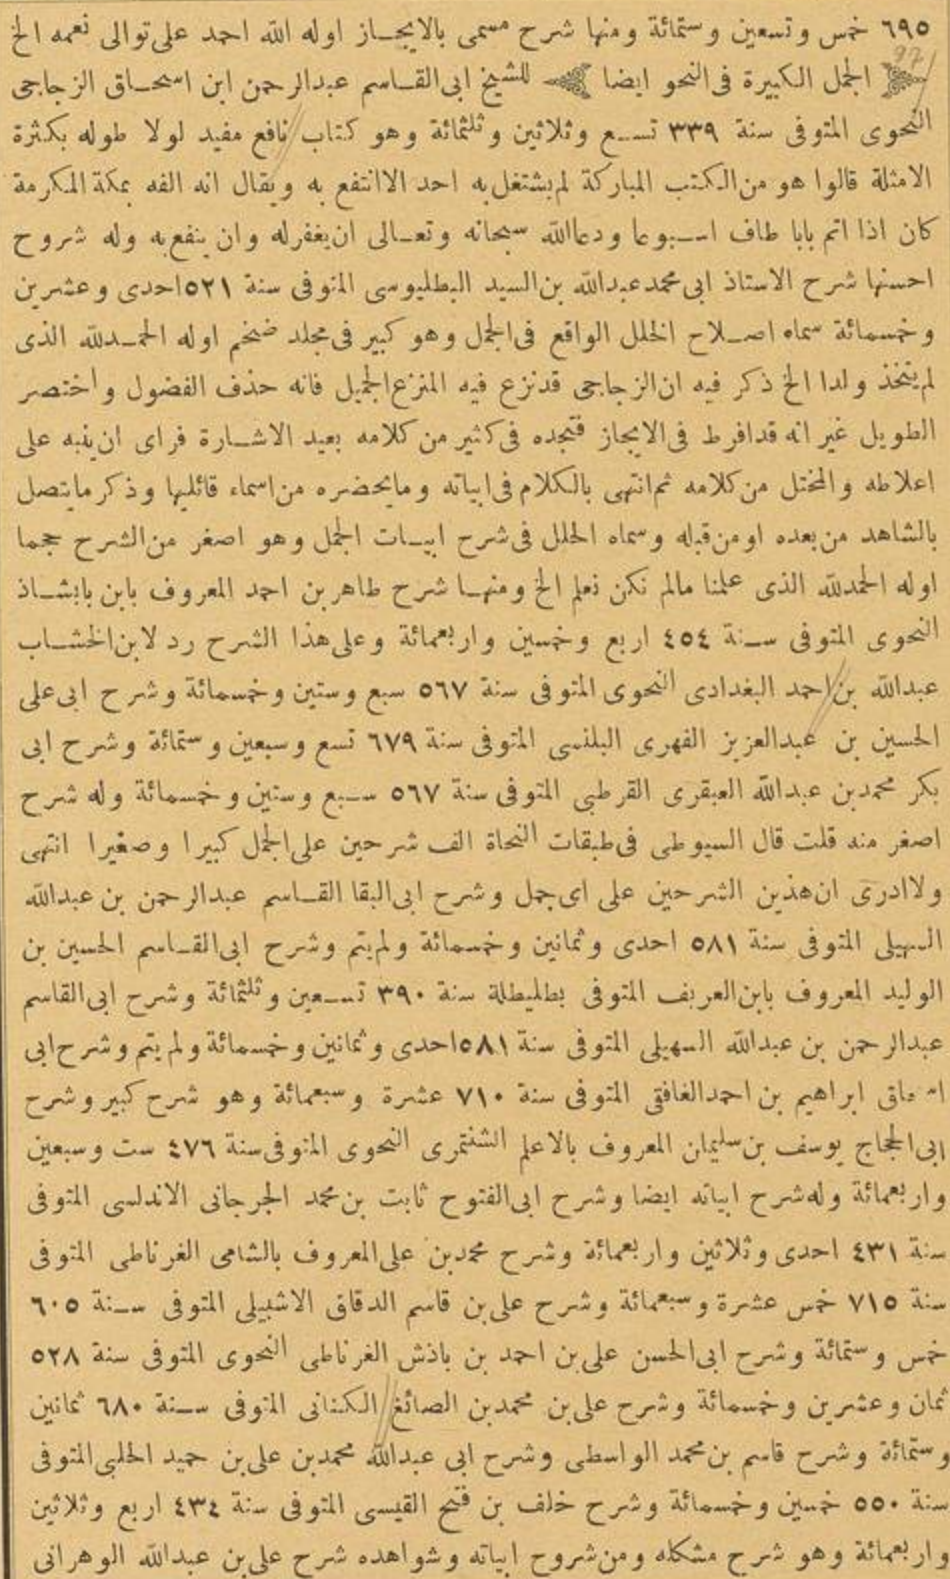 ٦٩٥ خمس وتسعين وستمائة ومنها شرح مسمى بالايجاز اوله الله احمد على توالى نعمه الخ
الجمل الكبيرة فى النحو ايضا للشيخ ابى القاسم عبدالرحمن ابن اسحاق الزجاجى
النحوى المتوفى سنة ٣٣٩ تسع وثلاثين وثلثمائة وهو كتاب نافع مفيد لولا طوله بكثرة
الامثلة قالوا هو من الكتب المباركة لم يشتغل به احد الا انتفع به ويقال انه الفه بمكة المكرمة
كان اذا اتم بابا طاف اسبوعا ودعا الله سبحانه وتعالى ان يغفر له وان ينفع به وله شروح
احسنها شرح الاستاذ ابى محمد عبدالله بن السيد البطليوسى المتوفى سنة ٥٢١ احدى وعشرين
وخمسمائة سماه اصلاح الخلل الواقع فى الجمل وهو كبير فى مجلد ضخم اوله الحمدلله الذى
لم يتخذ ولدا الخ ذكر فيه ان الزجاجى قدنزع فيه المنزع الجميل فانه حذف الفضول واختصر
الطويل غير انه قدافرط فى الايجاز فتجده فى كثير من كلامه بعيد الاشارة فراى ان ينبه على
اغلاطه والمختل من كلامه ثم انتهى بالكلام فى ابياته ومايحضره من اسماء قائليها وذكر مايتصل
بالشاهد من بعده او من قبله وسماه الحلل فى شرح ابيات الجمل وهو اصغر من الشرح حجما
اوله الحمدلله الذى علمنا مالم نكن نعلم الخ ومنها شرح طاهر بن احمد المعروف بابن بابشاذ
النحوى المتوفى سنة ٤٥٤ اربع وخمسين واربعمائة وعلى هذا الشرح رد لابن الخشاب
عبدالله بن احمد البغدادى النحوى المتوفى سنة ٥٦٧ سبع وستين وخمسمائة وشرح ابى على
الحسين بن عبدالعزيز الفهرى البلنسى المتوفى سنة ٦٧٩ تسع وسبعين وستمائة وشرح ابى
بكر محمدبن عبدالله العبقرى القرطبى المتوفى سنة ٥٦٧ سبع وستين وخمسمائة وله شرح
اصغر منه قلت قال السيوطى فى طبقات النحاة الف شرحين على الجمل كبيرا وصغيرا انتهى
ولاادرى ان هذين الشرحين على اى جمل وشرح ابى البقا القاسم عبدالرحمن بن عبدالله
السهيلى المتوفى سنة ٥٨١ احدى وثمانين وخمسمائة ولم يتم وشرح ابى القاسم الحسين بن
الوليد المعروف بابن العريف المتوفى بطليطلة سنة ٣٩٠ تسعين وثلثمائة وشرح ابى القاسم
عبدالرحمن بن عبدالله السهيلى المتوفى سنة ٥٨١ احدى وثمانين وخمسمائة ولم يتم وشرح ابى
ابراهيم بن احمدالغافقى المتوفى سنة ٧١٠ عشرة وسبعمائة وهو شرح كبير وشرح
ابى الحجاج يوسف بن سليمان المعروف بالاعلم الشنتمرى النحوى المتوفى سنة ٤٧٦ ست وسبعين
واربعمائة وله شرح ابياته ايضا وشرح ابى الفتوح ثابت بن محمد الجرجانى الاندلسى المتوفى
سنة ٤٣١ احدى وثلاثين واربعمائة وشرح محمدبن على المعروف بالشامى الغرناطى المتوفى
سنة ٧١٥ خمس عشرة وسبعمائة وشرح على بن قاسم الدقاق الاشبيلى المتوفى سنة ٦٠٥
خمس وستمائة وشرح ابى الحسن على بن احمد بن باذش الغرناطى النحوى المتوفى سنة ٥٢٨
ثمان وعشرين وخمسمائة وشرح على بن محمدبن الصائغ الكنانى المتوفى سنة ٦٨٠ ثمانين
وستمائة وشرح قاسم بن محمد الواسطى وشرح ابى عبدالله محمدبن على بن حميد الحلبى المتوفى
سنة ٥٥٠ خمسين وخمسمائة وشرح خلف بن فتح القيسى المتوفى سنة ٤٣٤ اربع وثلاثين
واربعمائة وهو شرح مشكله ومن شروح ابياته وشواهده شرح على بن عبدالله الوهرانى